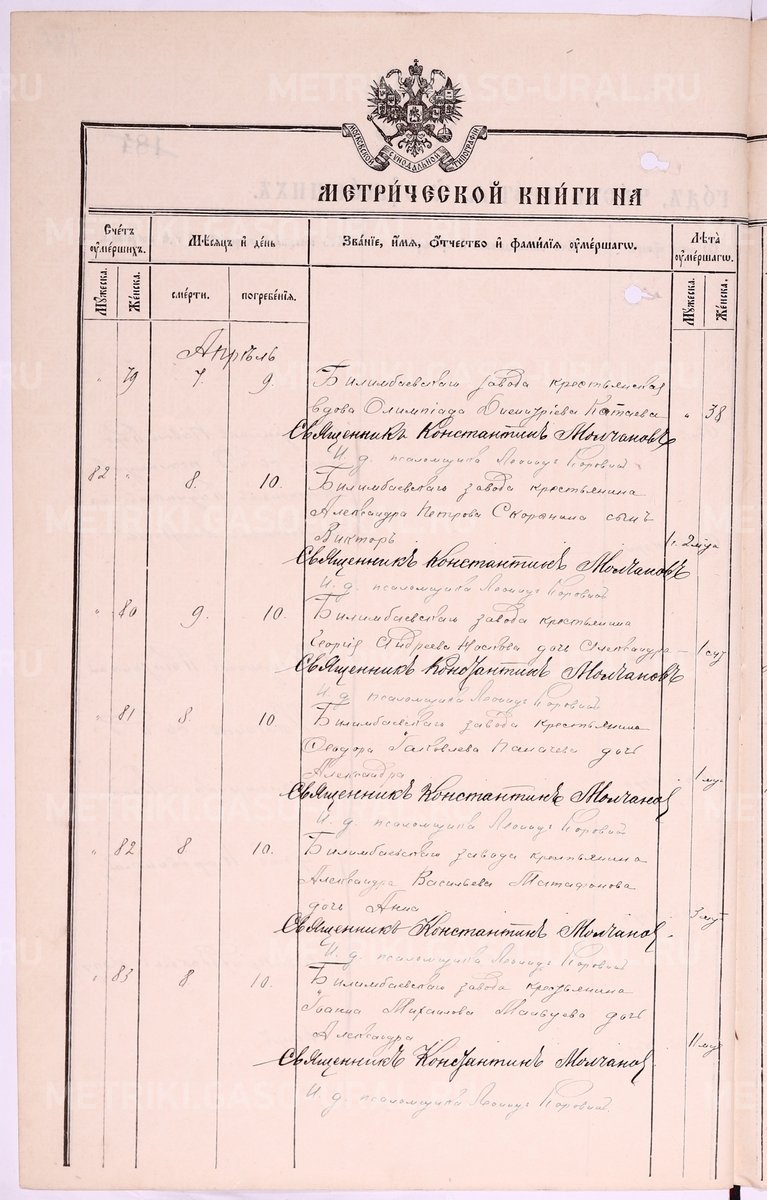 МОСКОВСКОЙ СѴНОДАЛЬНОЙ ТИПОГРАФІИ
МЕТРИ́ЧЕСКОЙ КНИ́ГИ НА
Счетъ ѹмершихъ.
Мѣсяцъ и день
Званіе, имя, отчество и фамилія ѹмершагѡ.
Лѣта ѹмершагѡ.
Мужеска.
Женска.
смерти.
погребенія.
Мужеска.
Женска.
Апрѣль
" 79 7. 9. Билимбаевскаго завода крестьянская
вдова Олимпіада Катаева " 38
Священникъ Константинъ Молчановъ
И. д. псаломщика Леонидъ
82 " 8. 10. Билимбаевскаго завода крестьянина
Александра Петрова Скорынина сынъ
Викторъ
Священникъ Константинъ Молчановъ
И. д. псаломщика Леонидъ
" 80 9. 10. Билимбаевскаго завода крестьянина
Георгія Андреева Носкова дочь Александра
Священникъ Константинъ Молчановъ
И. д. псаломщика Леонидъ
" 81 8 10. Билимбаевскаго завода крестьянина
Ѳеодора Іаковлева дочь
Александра 1
Священникъ Константинъ Молчановъ
И. д. псаломщика Леонидъ
" 82 8 10. Билимбаевскаго завода крестьянина
Александра Васильева Матафонова
дочь Анна 3
Священникъ Константинъ Молчановъ
И. д. псаломщика Леонидъ
" 83 8 10. Билимбаевскаго завода крестьянина
Іоанна Михаилова дочь
Александра 11
Священникъ Константинъ Молчановъ
И. д. псаломщика Леонидъ
METRIKI.GASO-URAL.RU